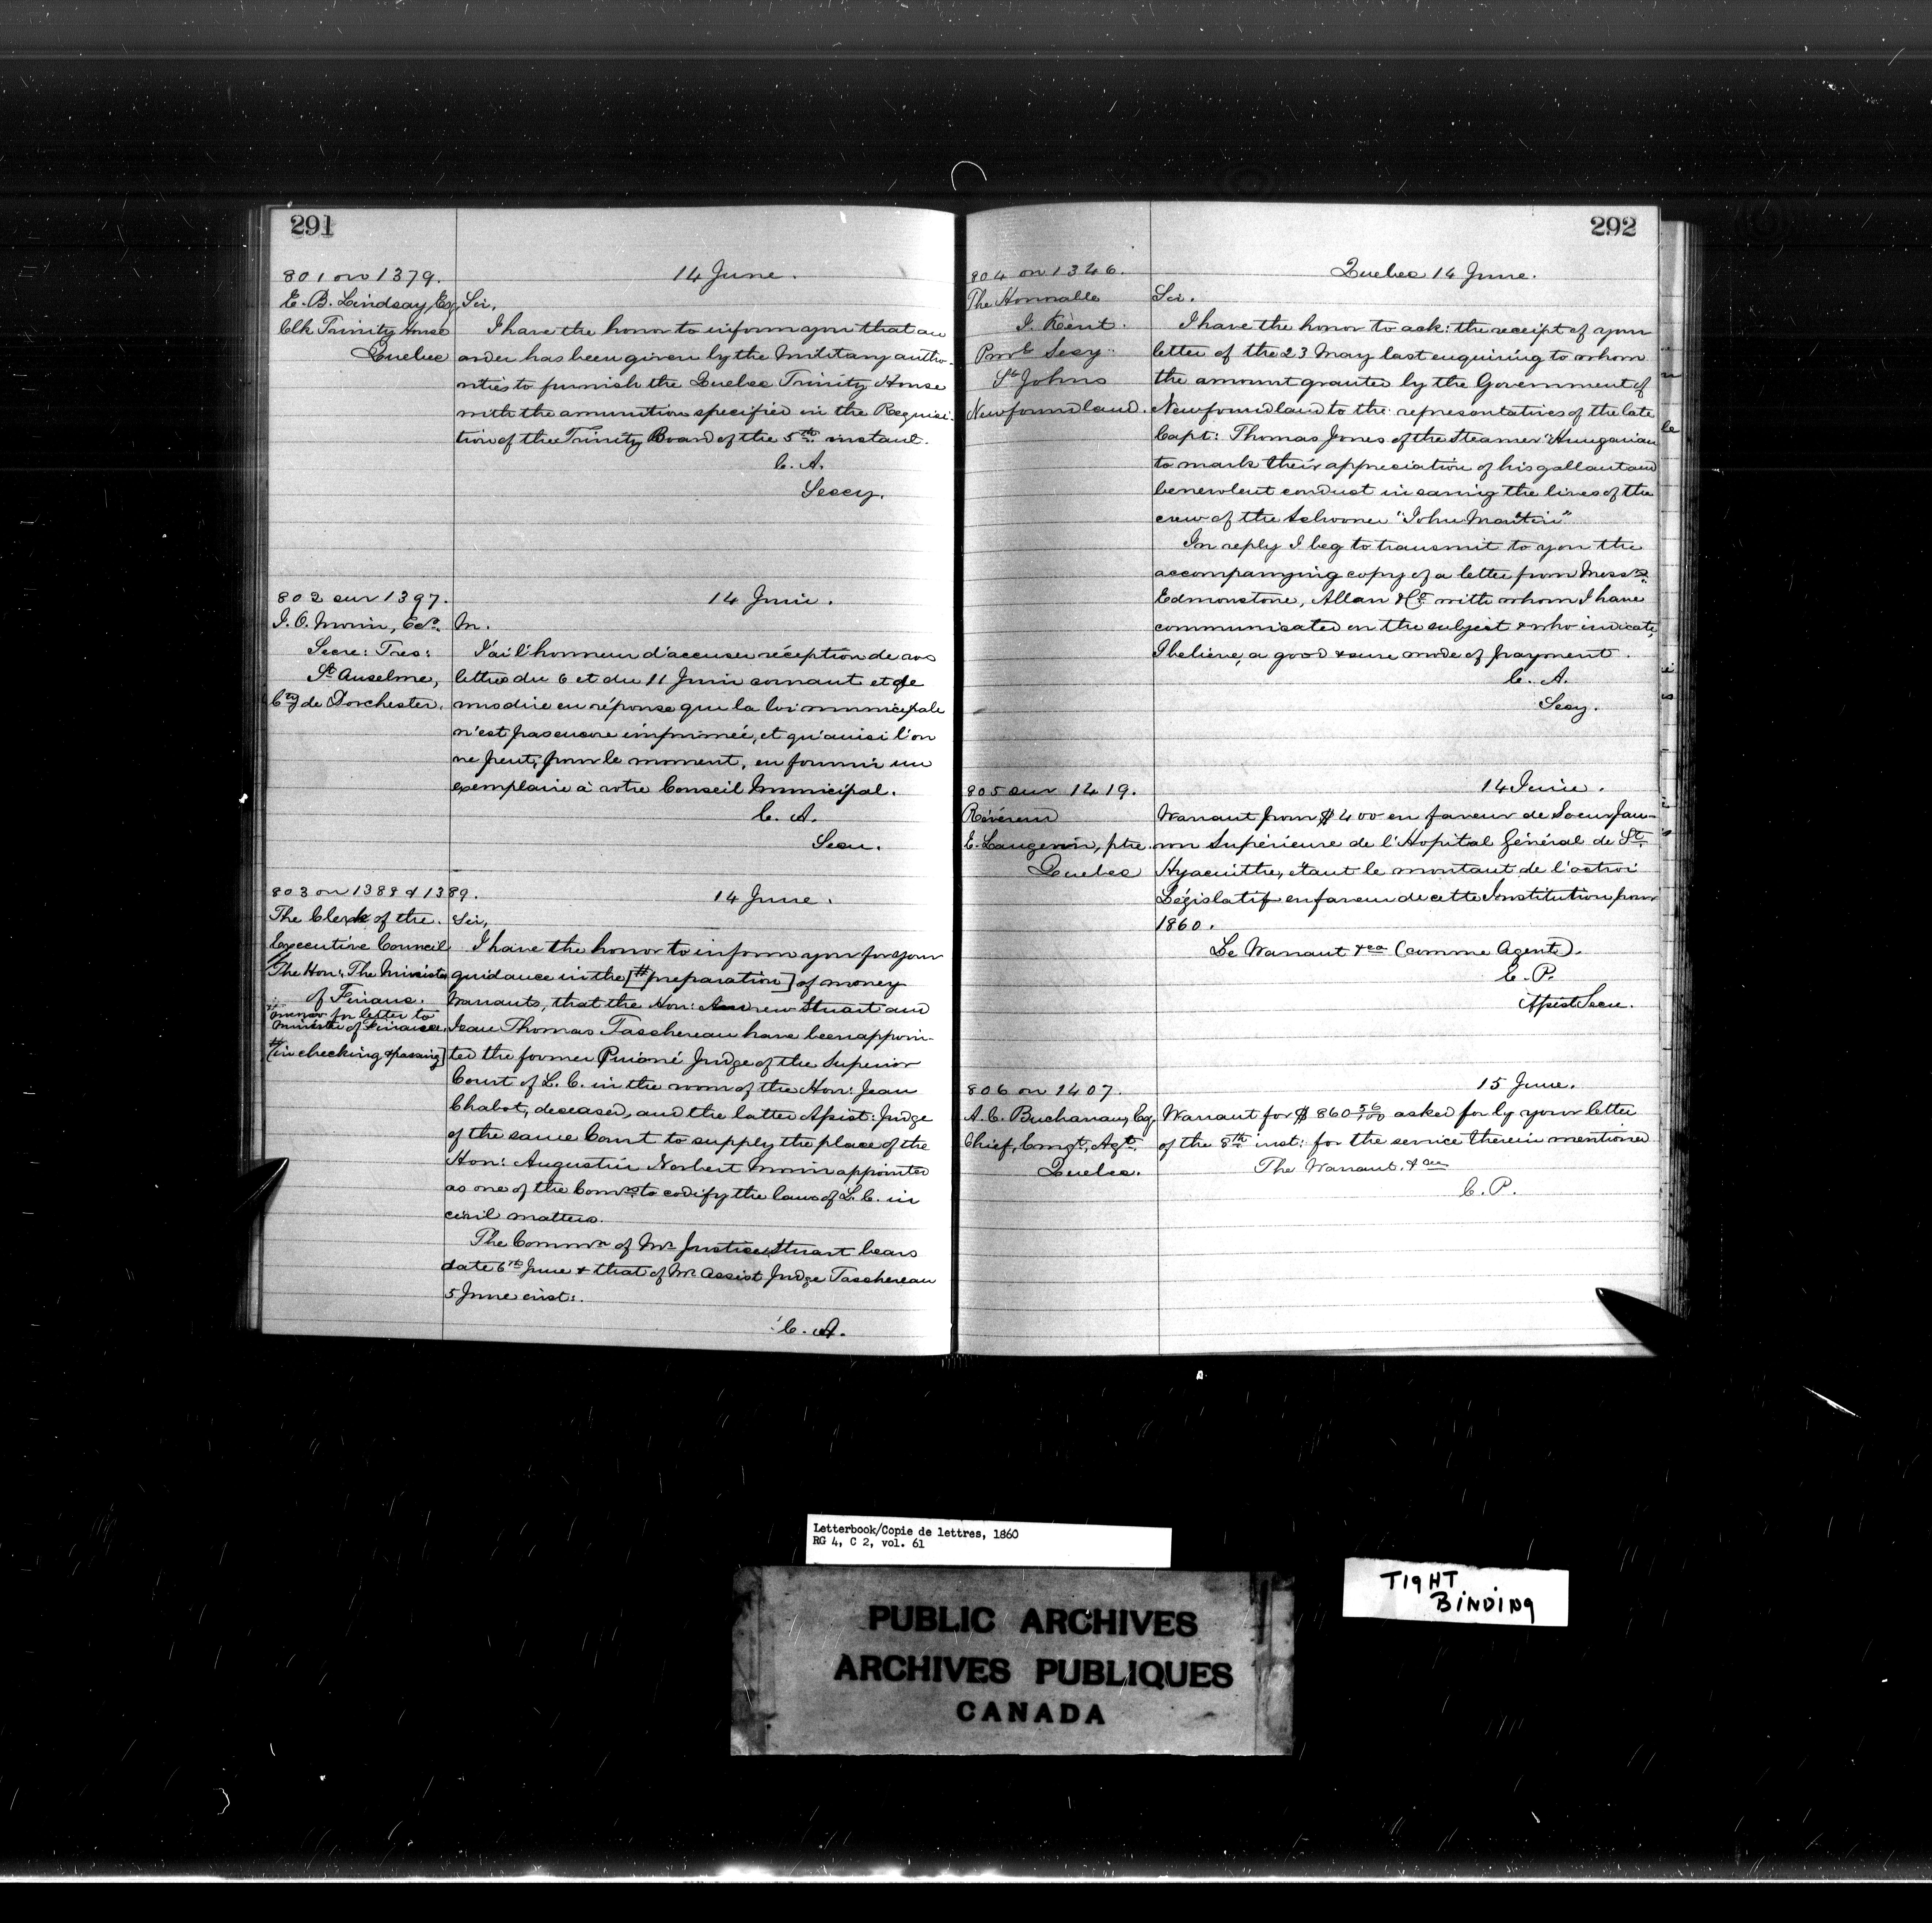 291
801 on 1379.
14 June.
E. B. Lindsay, Esq,
Clk Trinity House
Quebec
Sir,
I have the honor to inform you that an
order has been given by the Military autho-
rities to furnish the Quebec Trinity House
with the amunition specified in the Requisi-
tion of the Trinity Board of the 5th instant.
C. A.
Secy.
802 sur 1397.
14 Juin.
J. O. Morin, Ecr.
Secre: Tres:
St Anselme,
Cty de Dorchester.
M.
J'ai l'honneur d'accuser réception de vos
lettres du 6 et du 11 Juin courant et de
vous dire en réponse que la loi municipale
n'est pas encore imprimée, et qu'ainsi l'on
ne peut, pour le moment, en fournir un
exemplaire à votre Conseil Municipal.
C. A.
Secre.
803 on 1388 & 1389.
14 June.
The Clerk of the
Executive Council
The Hon: The Minister
of Finance.
memo for letter to
Minister of Finance.
# [in checking & passing]
Sir,
I have the honor to inform you for your
guidance in the [# preparation] of money
Warrants, that the Hon: Andrew Stuart and
Jean Thomas Taschereau have been appoin-
ted the former Puisné Judge of the Superior
Court of L. C. in the room of the Hon: Jean
Chabot, deceased, and the latter Assist: Judge
of the same Court to supply the place of the
Hon: Augustin Norbert Morin appointed
as one of the Comrs to codify the laws of L. C. in
civil matters.
The Commn of Mr Justice Stuart bears
date 6th June & that of Mr Assist Judge Taschereau
5 June inst:.
C. A.
292
804 on 1346.
Quebec 14 June.
The Honorable
J. Kent.
Provl Secy.
St Johns
Newfoundland.
Sir.
I have the honor to ack: the receipt of your
letter of the 23 May last enquiring to whom
the amount granted by the Government of
Newfoundland to the representatives of the late
Capt: Thomas Jones of the Steamer "Hungarian
to mark their appreciation of his gallant and
benevolent conduct in saving the lives of the
crew of the Schooner "John Martin"
In reply I beg to transmit to you the
accompanying copy of a letter from Messrs
Edmonstone, Allan & Co with whom I have
communicated on the subject & who indicate,
I believe, a good & sure mode of payment.
C. A.
Secy.
805 sur 1419.
14 Juin.
Révérend
E. Langevin, ptre.
Quebec
Warrant pour $400 en faveur de Soeur Jau-
ron Supérieure de l'Hopital Général de St
Hyacinthe, étant le montant de l'octroi
Législatif en faveur de cette Institution pour
1860.
Le Warrant &ca (comme Agent).
E. P.
Assist Secre.
806 on 1407.
15 June.
A. C. Buchanan, Esq,
Chief, Emgt. Agt.
Quebec.
Warrant for $860 56/100 asked for by your letter
of the 8th inst: for the service therein mentioned
The Warrant, &ca
E. P.
Letterbook/Copie de lettres, 1860
RG 4, C 2, vol. 61
TIGHT
BINDING
PUBLIC ARCHIVES
ARCHIVES PUBLIQUES
CANADA